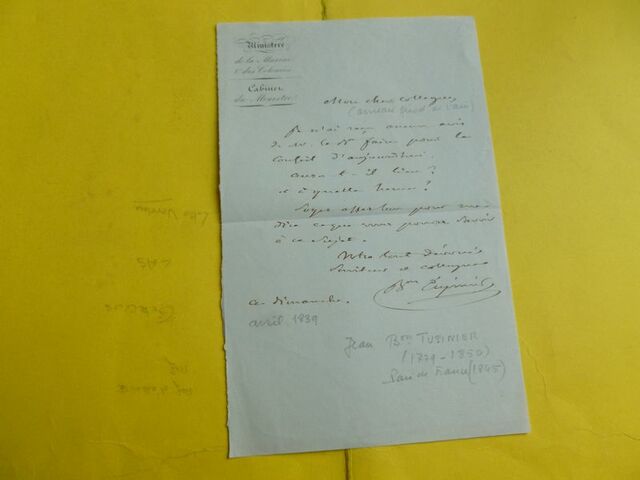 Ministère
de la Marine
et des Colonies
Cabinet
du Ministre
Mon cher collègue,
Je n'ai reçu aucun avis
de pour le
conseil d'aujourd'hui.
aura-t-il lieu ?
et à quelle heure ?
Soyez assez bon pour me
dire ce que vous pouvez savoir
à ce sujet.
Votre tout dévoué
Serviteur et collègue
Bon Tupinier
ce dimanche.
avril 1839
Jean Bon TUPINIER
(1779-1850)
Pair de France (1845)